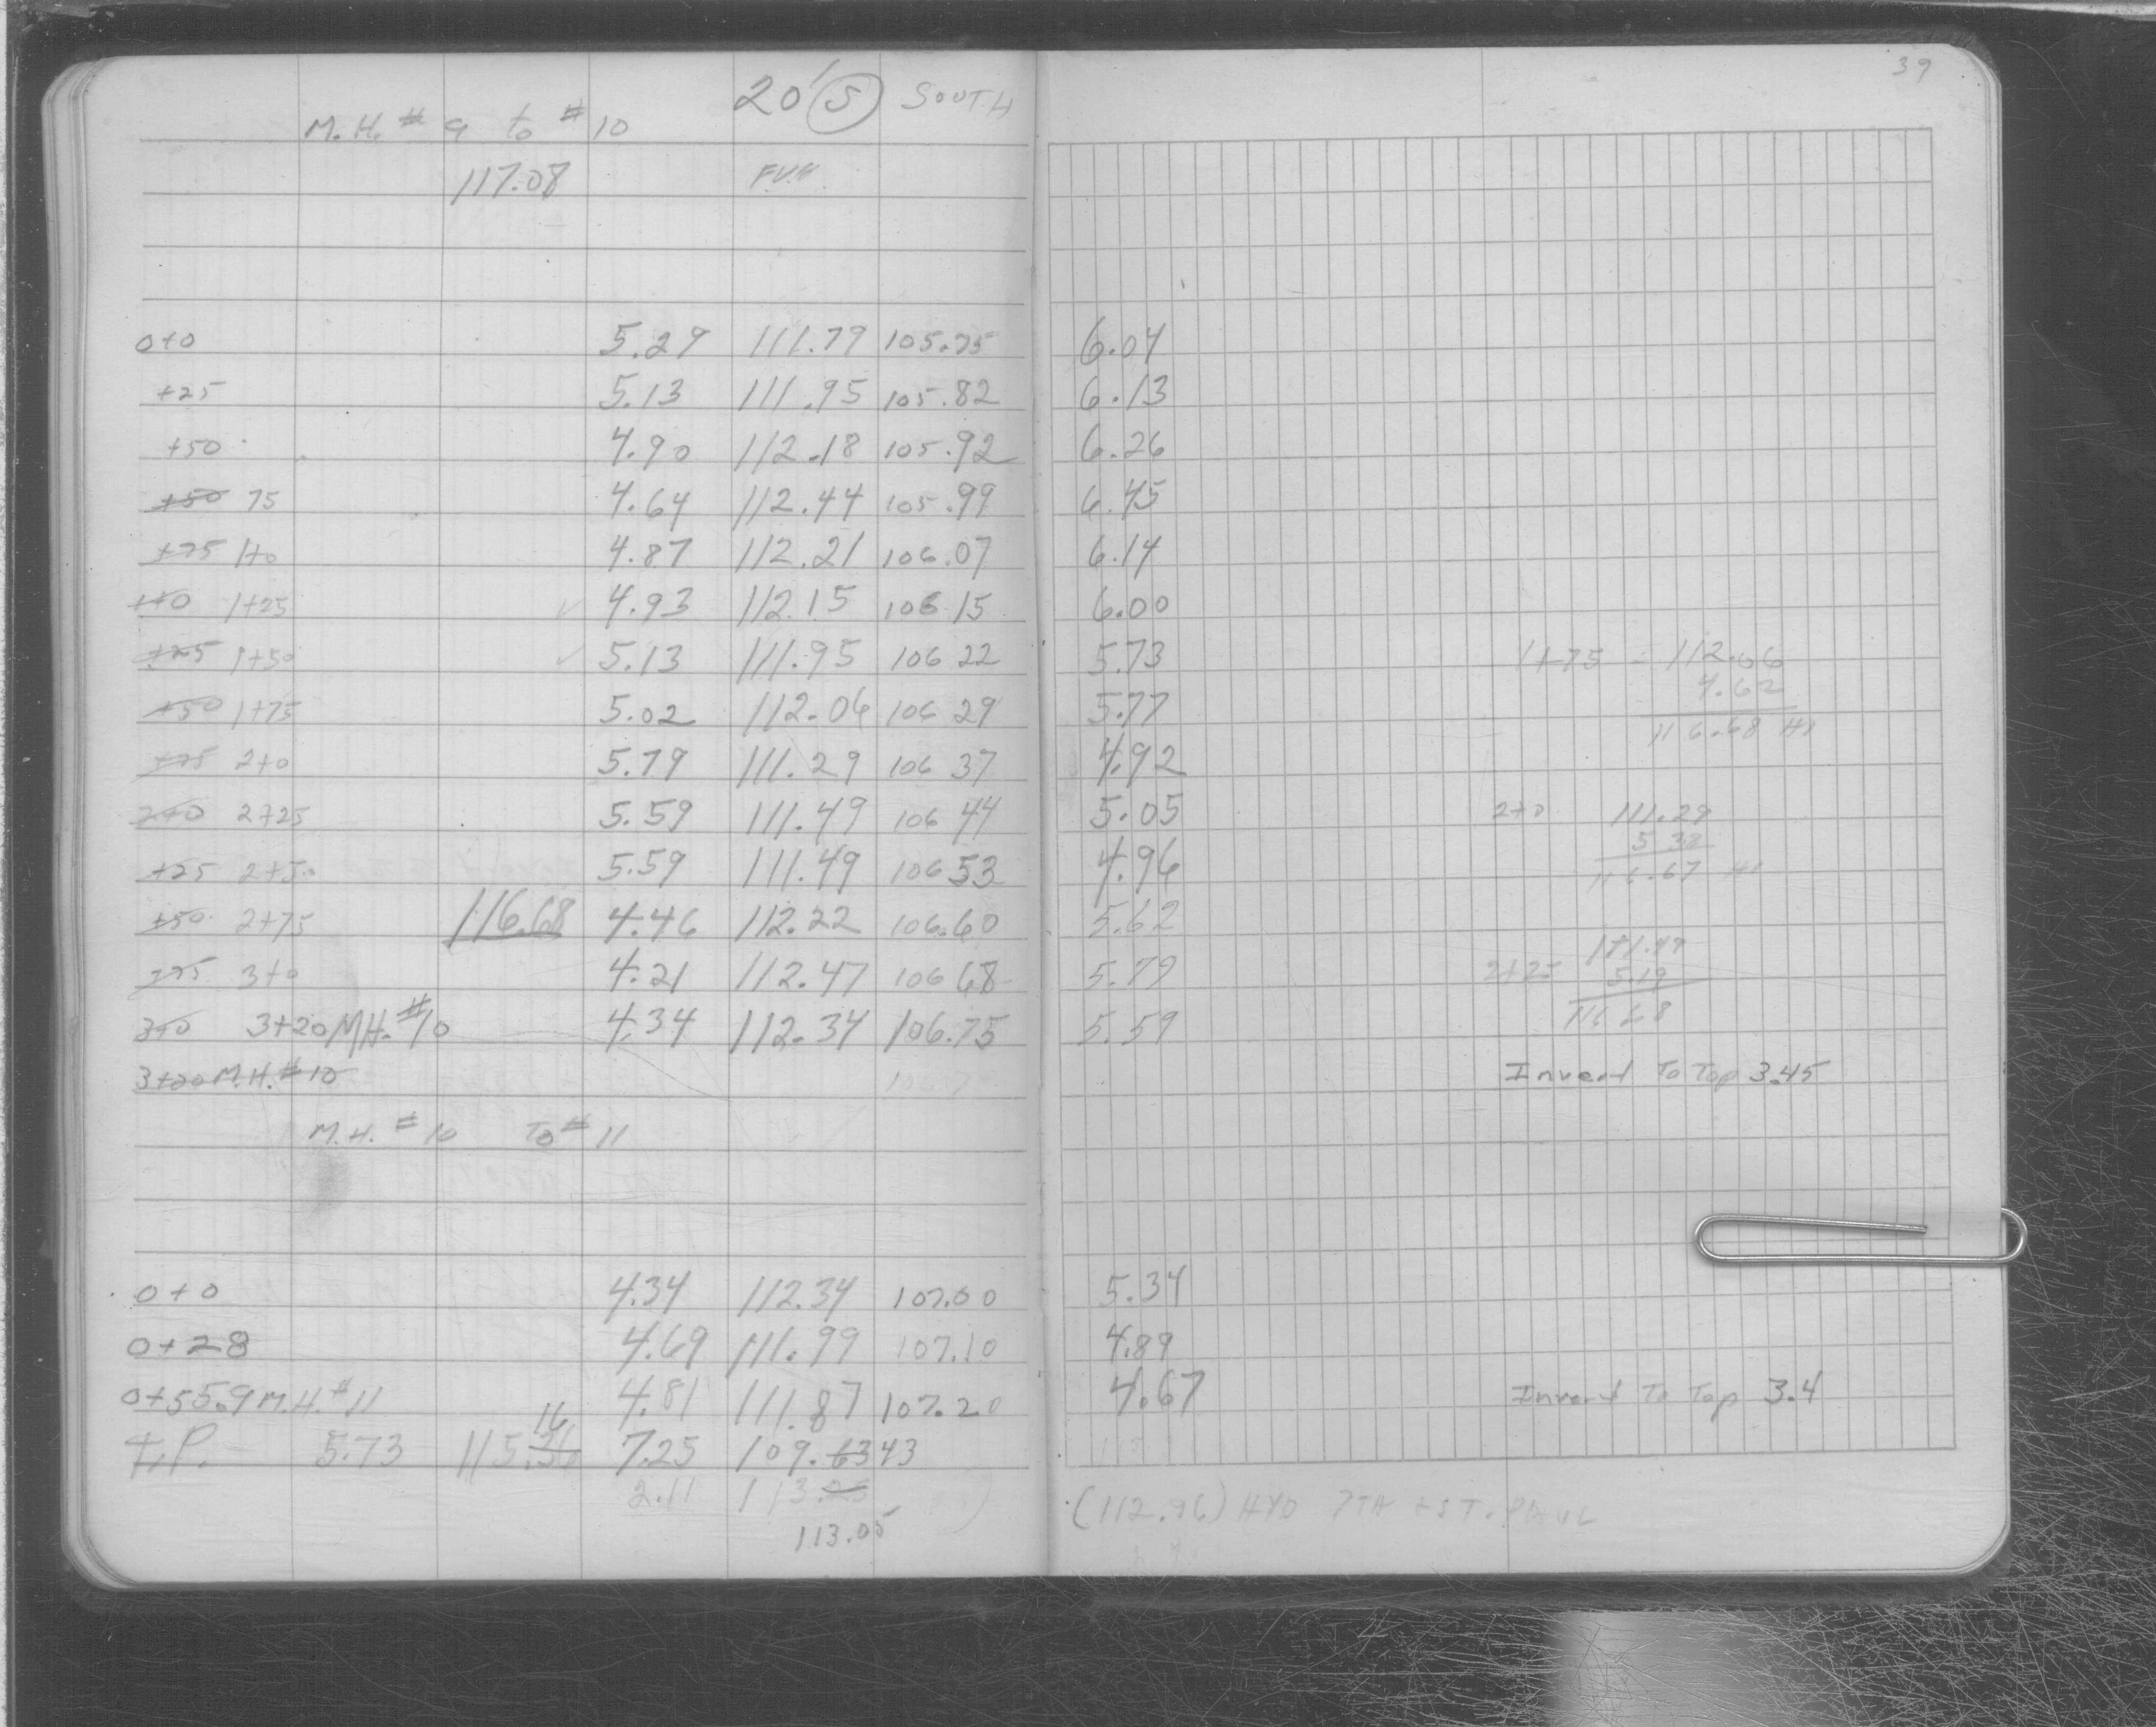 39
20' S SOUTH
M. H. # 9 to # 10
117.08
0+0 5.29 111.79 105.75 6.04
+25 5.13 111.95 105.82 6.13
+50 4.90 112.18 105.92 6.26
+50 75 4.64 112.44 105.99 6.45
+75 1+0 4.87 112.21 106.07 6.14
1+0 1+25 4.93 112.15 106 15 6.00
+25 1+50 5.13 111.95 106 22 5.73 1+75 = 112.06
+50 1+75 5.02 112.06 106 29 5.77 4.62
116.68 HI
+75 2+0 5.79 111.29 106 37 4.92
2+0 2+25 5.59 111.49 106 44 5.05 2+0 111.29
5 38
+25 2+50 5.59 111.49 106 53 4.96 116.67 HI
+50 2+75 116.68 4.46 112.22 106.60 5.62 111.49
+75 3+0 4.21 112.47 106 68 5.79 2+25 5.19
3+0 3+20 M.H. #10 4.34 112.34 106.75 5.59 116 68
3+20 M.H. # 10 Invert To Top 3.45
M.H. # 10 To # 11
0+0 4.34 112.34 107.00 5.34
0+28 4.69 111.99 107.10 4.89
0+55.9 M.H. # 11 4.81 111.87 107.20 4.67 Invert To Top 3.4
16
T.P. - 5.73 115.36 7.25 109.63 43
2.11 113.25
113.05
(112.96) HYD 7TH + ST. PAUL